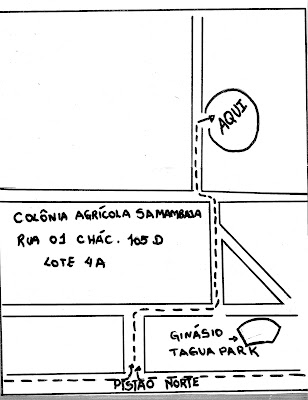 AQUI
COLÔNIA AGRÍCOLA SAMAMBAIA
RUA 01 CHÁC. 105 D
LOTE 4A
GINÁSIO
TAGUA PARK
PISTÃO NORTE